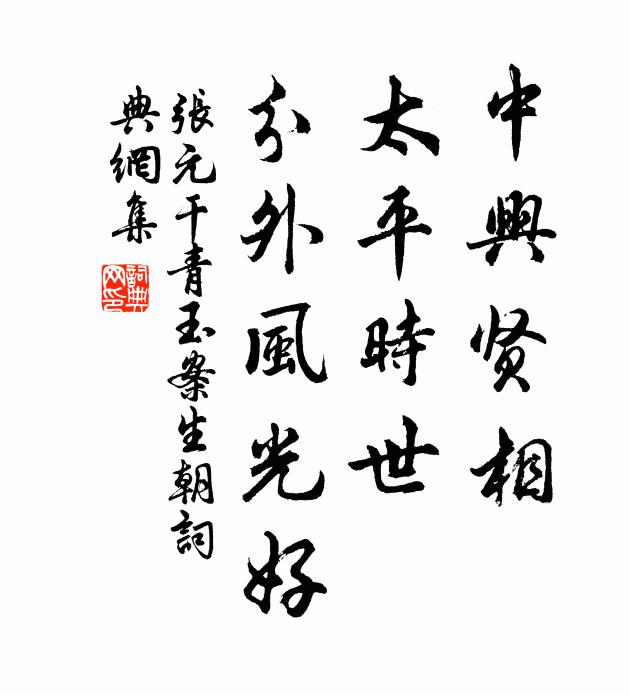 中興贤相
太平時世
分外風光好
張元干青玉案生朝詞
典網集
詞典網印